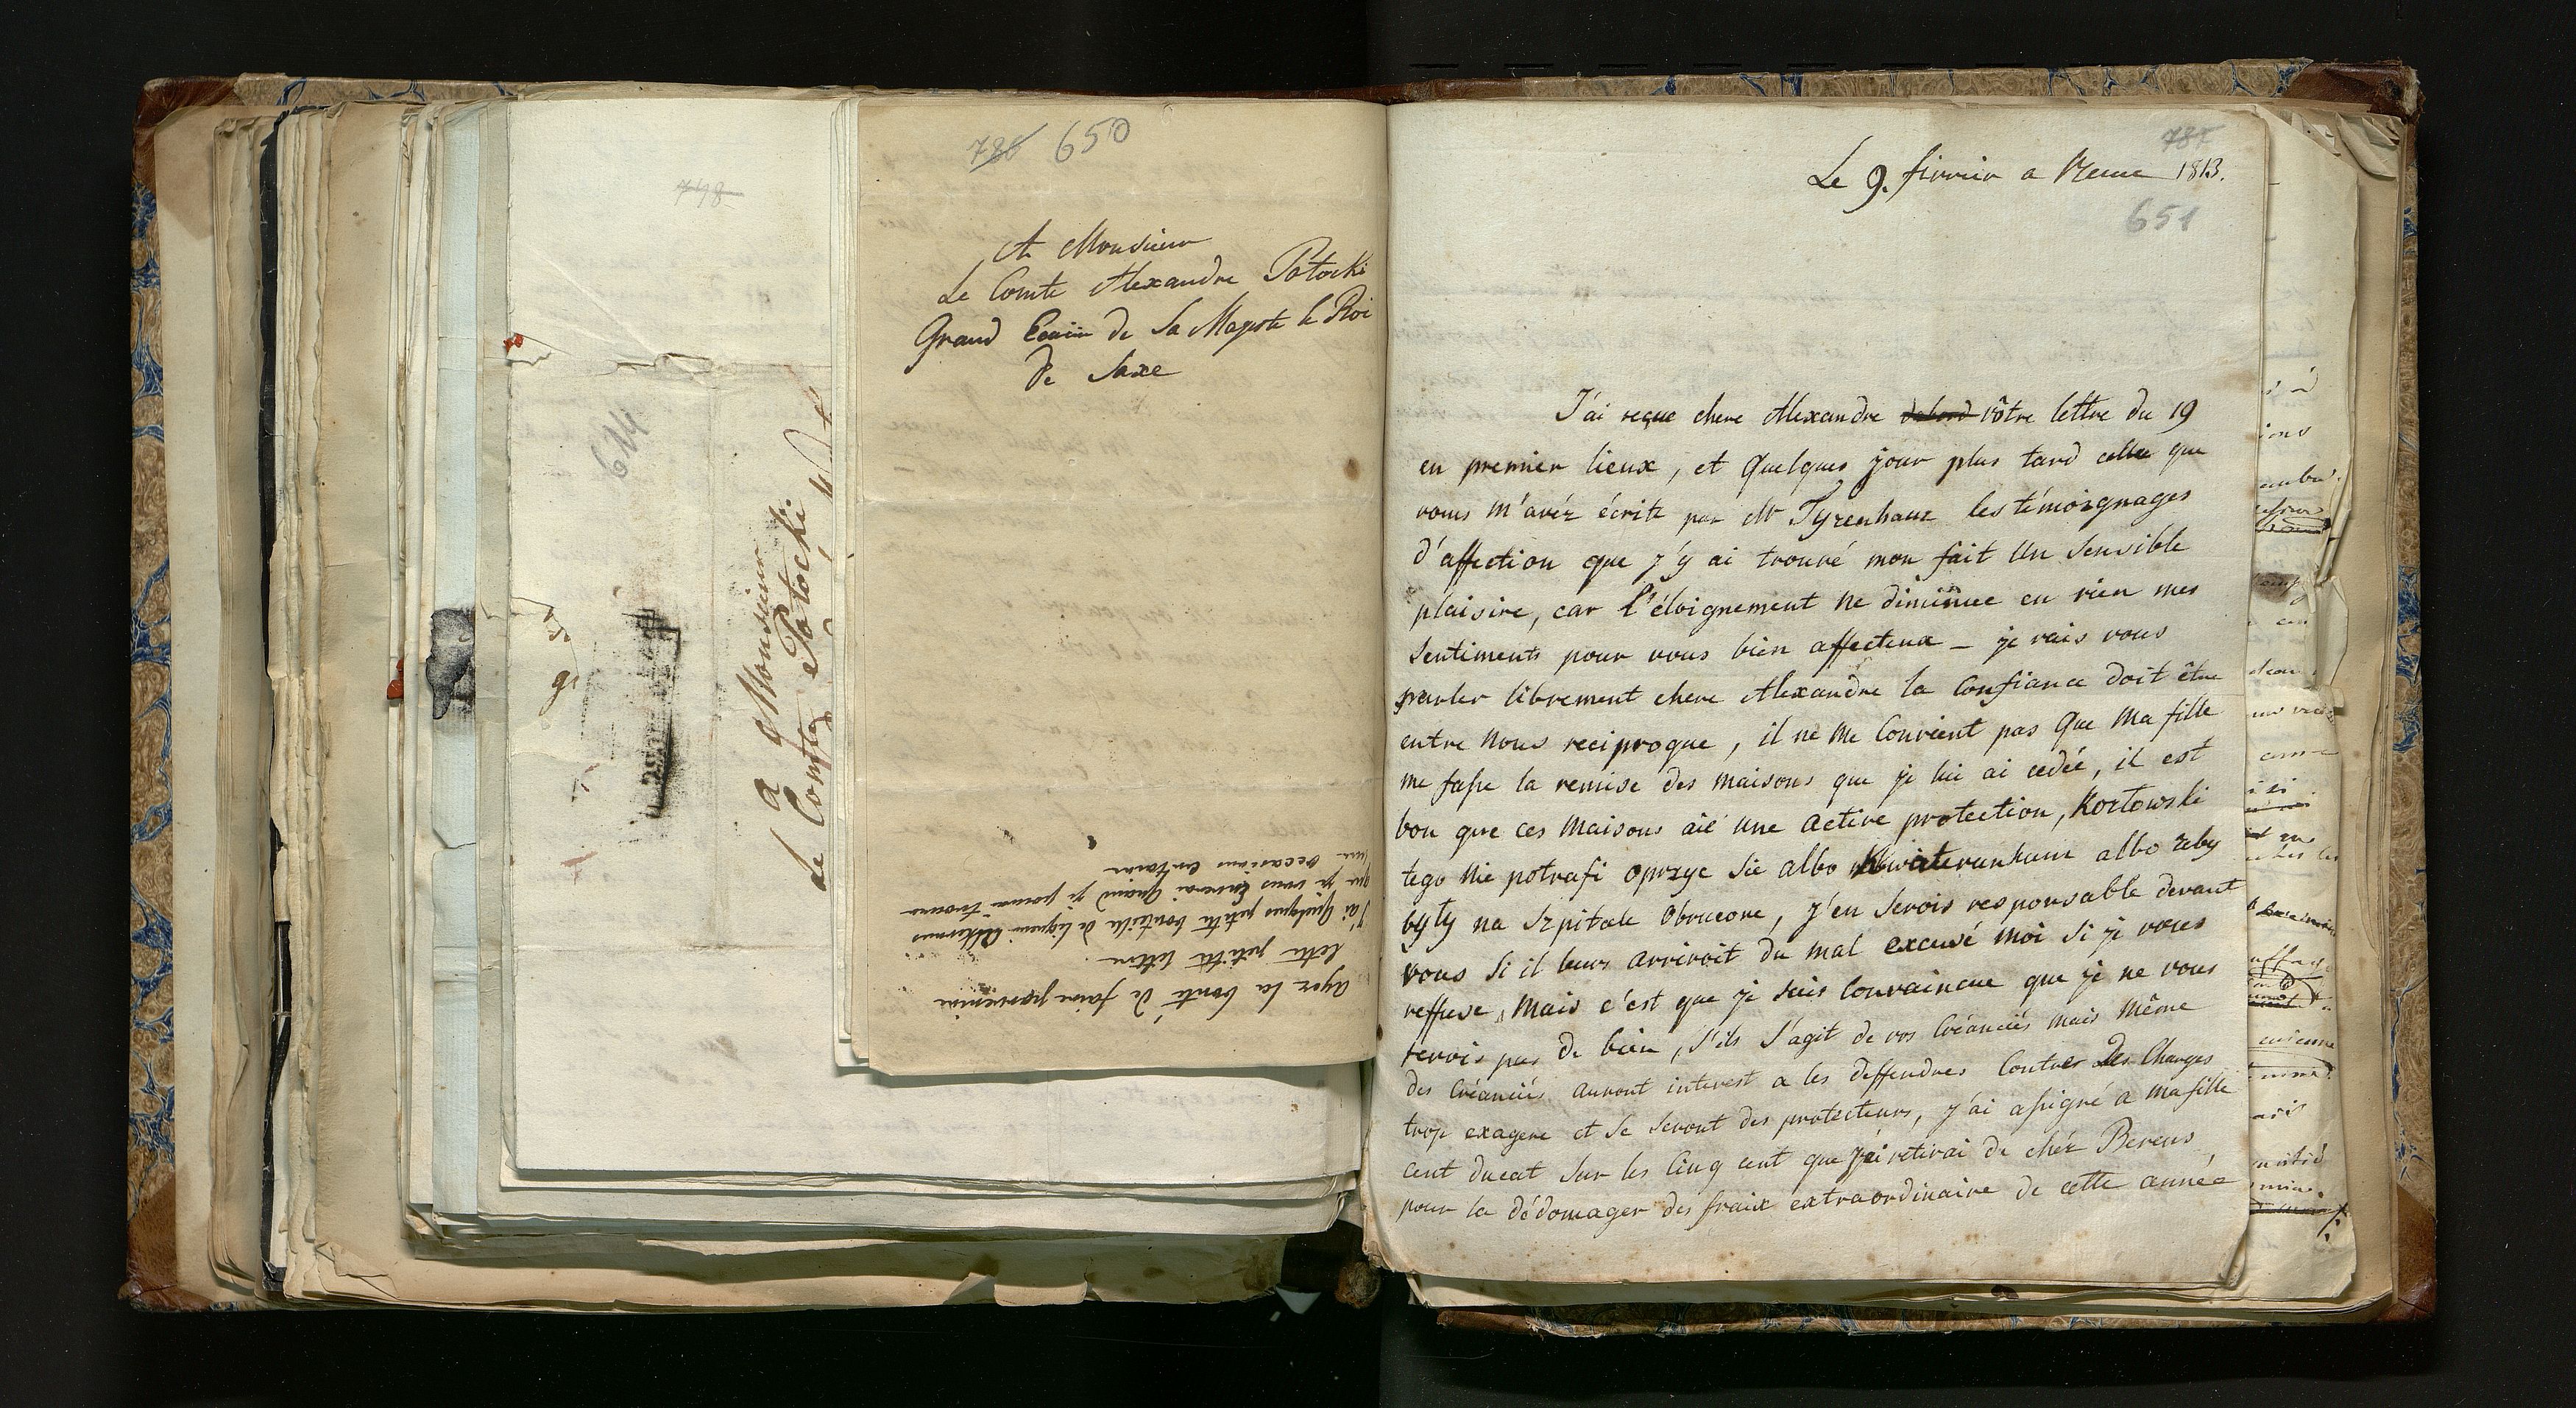 748
614
a Monsieur
Le Comte Potocki
786 650
A Monsieur
Le Comte Alexandre Potocki
Grand Ecuiie de Sa Majeste le Roi
de Saxe
ayez la bonté de faire parvenire
cette petitte lettre
j'ai quelques petitte bouteille de liqueur
que je vous enverai quand je pourai trouver
une occasions certaine
787
Le 9. fivrier a 1813.
651
J'ai reçue chere Alexandre dabord vôtre lettre du 19
en premier lieux, et quelques jour plus tard celle que
vous m'avéz écrite par Mr Tyzenhauz les témoignages
d'affection que j'y ai trouvé mon fait un sensible
plaisire, car l'éloignement ne diminue en rien mes
sentiments pour vous bien affecteux – je vais vous
parler librement chere Alexandre la confiance doit être
entre nous reciproque, il ne me convient pas que ma fille
me fasse la remise des maisons que je lui ai cedée, il est
bon que ces maisons aie une active protection, Kozlowski
tego nie potrafi oprzyc sie albo kwaterunkum albo zeby
byly na szpitale obrucone, j'en serois responsable devant
vous si il leurs arrivoit du mal excusé moi si je vous
reffuse, mais c'est que je suis convaincue que je ne vous
ferois pas de bien, s'ils s'agit de vos créanciés mais même
des créanciés auront interest a les deffendres contres des charges
trop exagere et se seront des protecteurs, j'ai assigné a ma fille
cent ducat sur les cinq cent que j'ai retirai de chéz Berens
pour la dédomager des fraix extraordinaire de cette année